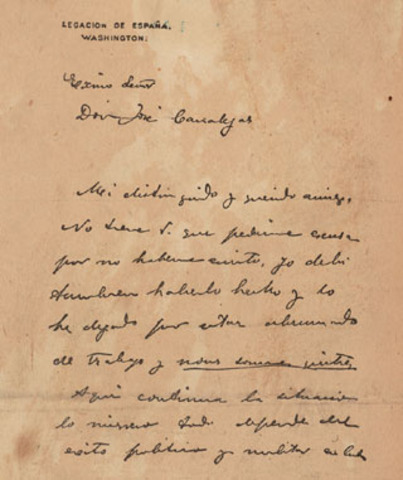 LEGACION DE ESPAÑA.
WASHINGTON.
Excmo Señor
Don José Canalejas
Mi distinguido y querido amigo,
No tiene V. que pedirme excusa
por no haberme escrito, yo debi
tambien haberlo hecho y lo
he dejado por estar abrumado
de trabajo y nous sommes quittes.
Aqui continua la situacion
lo mismo todo depende del
exito politico y militar en Cuba